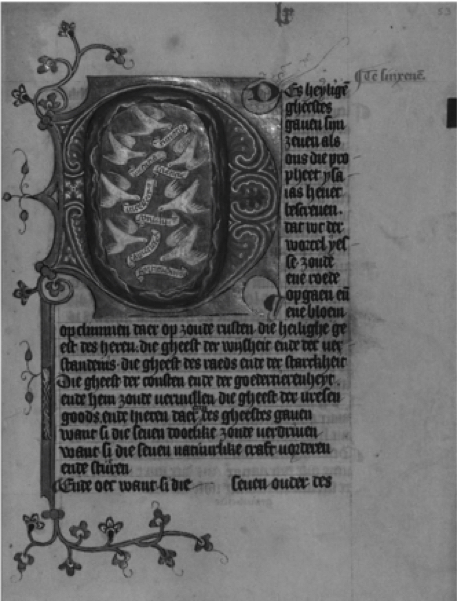 lx
53
Te sinxenē
Es heylige
gheestes
gauen sijn
zeuen als
ons die pro
pheet ysa
ias heuet
bescreuen.
dat wt der
wortel yes
se zoude
ene roede
opgaen eñ
ene bloem
opclimmen daer op zoude rusten die heilighe ge
est des heren. die gheest der wijsheit ende der ver
standenis. die gheest des raeds ende der starcheit
Die gheest der consten ende der goedertierenheyt.
ende hem zoude veruullen die gheest der vresen
goods. ende hieten daer des gheestes gauen
want si die seuen dootlike zonde verdriuen
want si die seuen natuurlike craft vorderen
ende stüren
Ende oec want si die seuen onder des